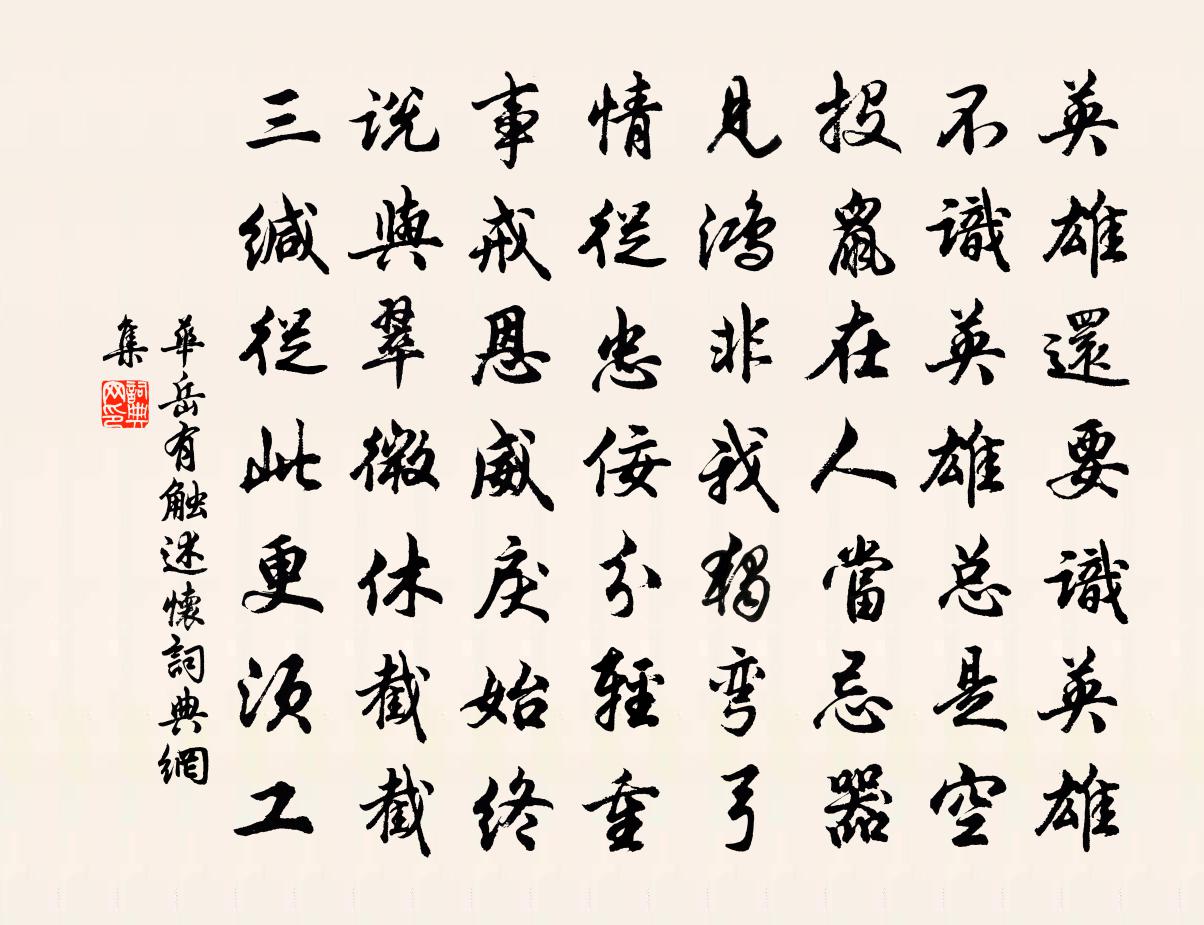 英雄還要識英雄
不識英雄总是空
投鼠在人當忌器
見鴻非我獨彎弓
情從忠佞分輕重
事戒恩威戾始終
說與翠微休截截
三緘從此更須工
華岳有触述懷詞典網
集
詞典
网印